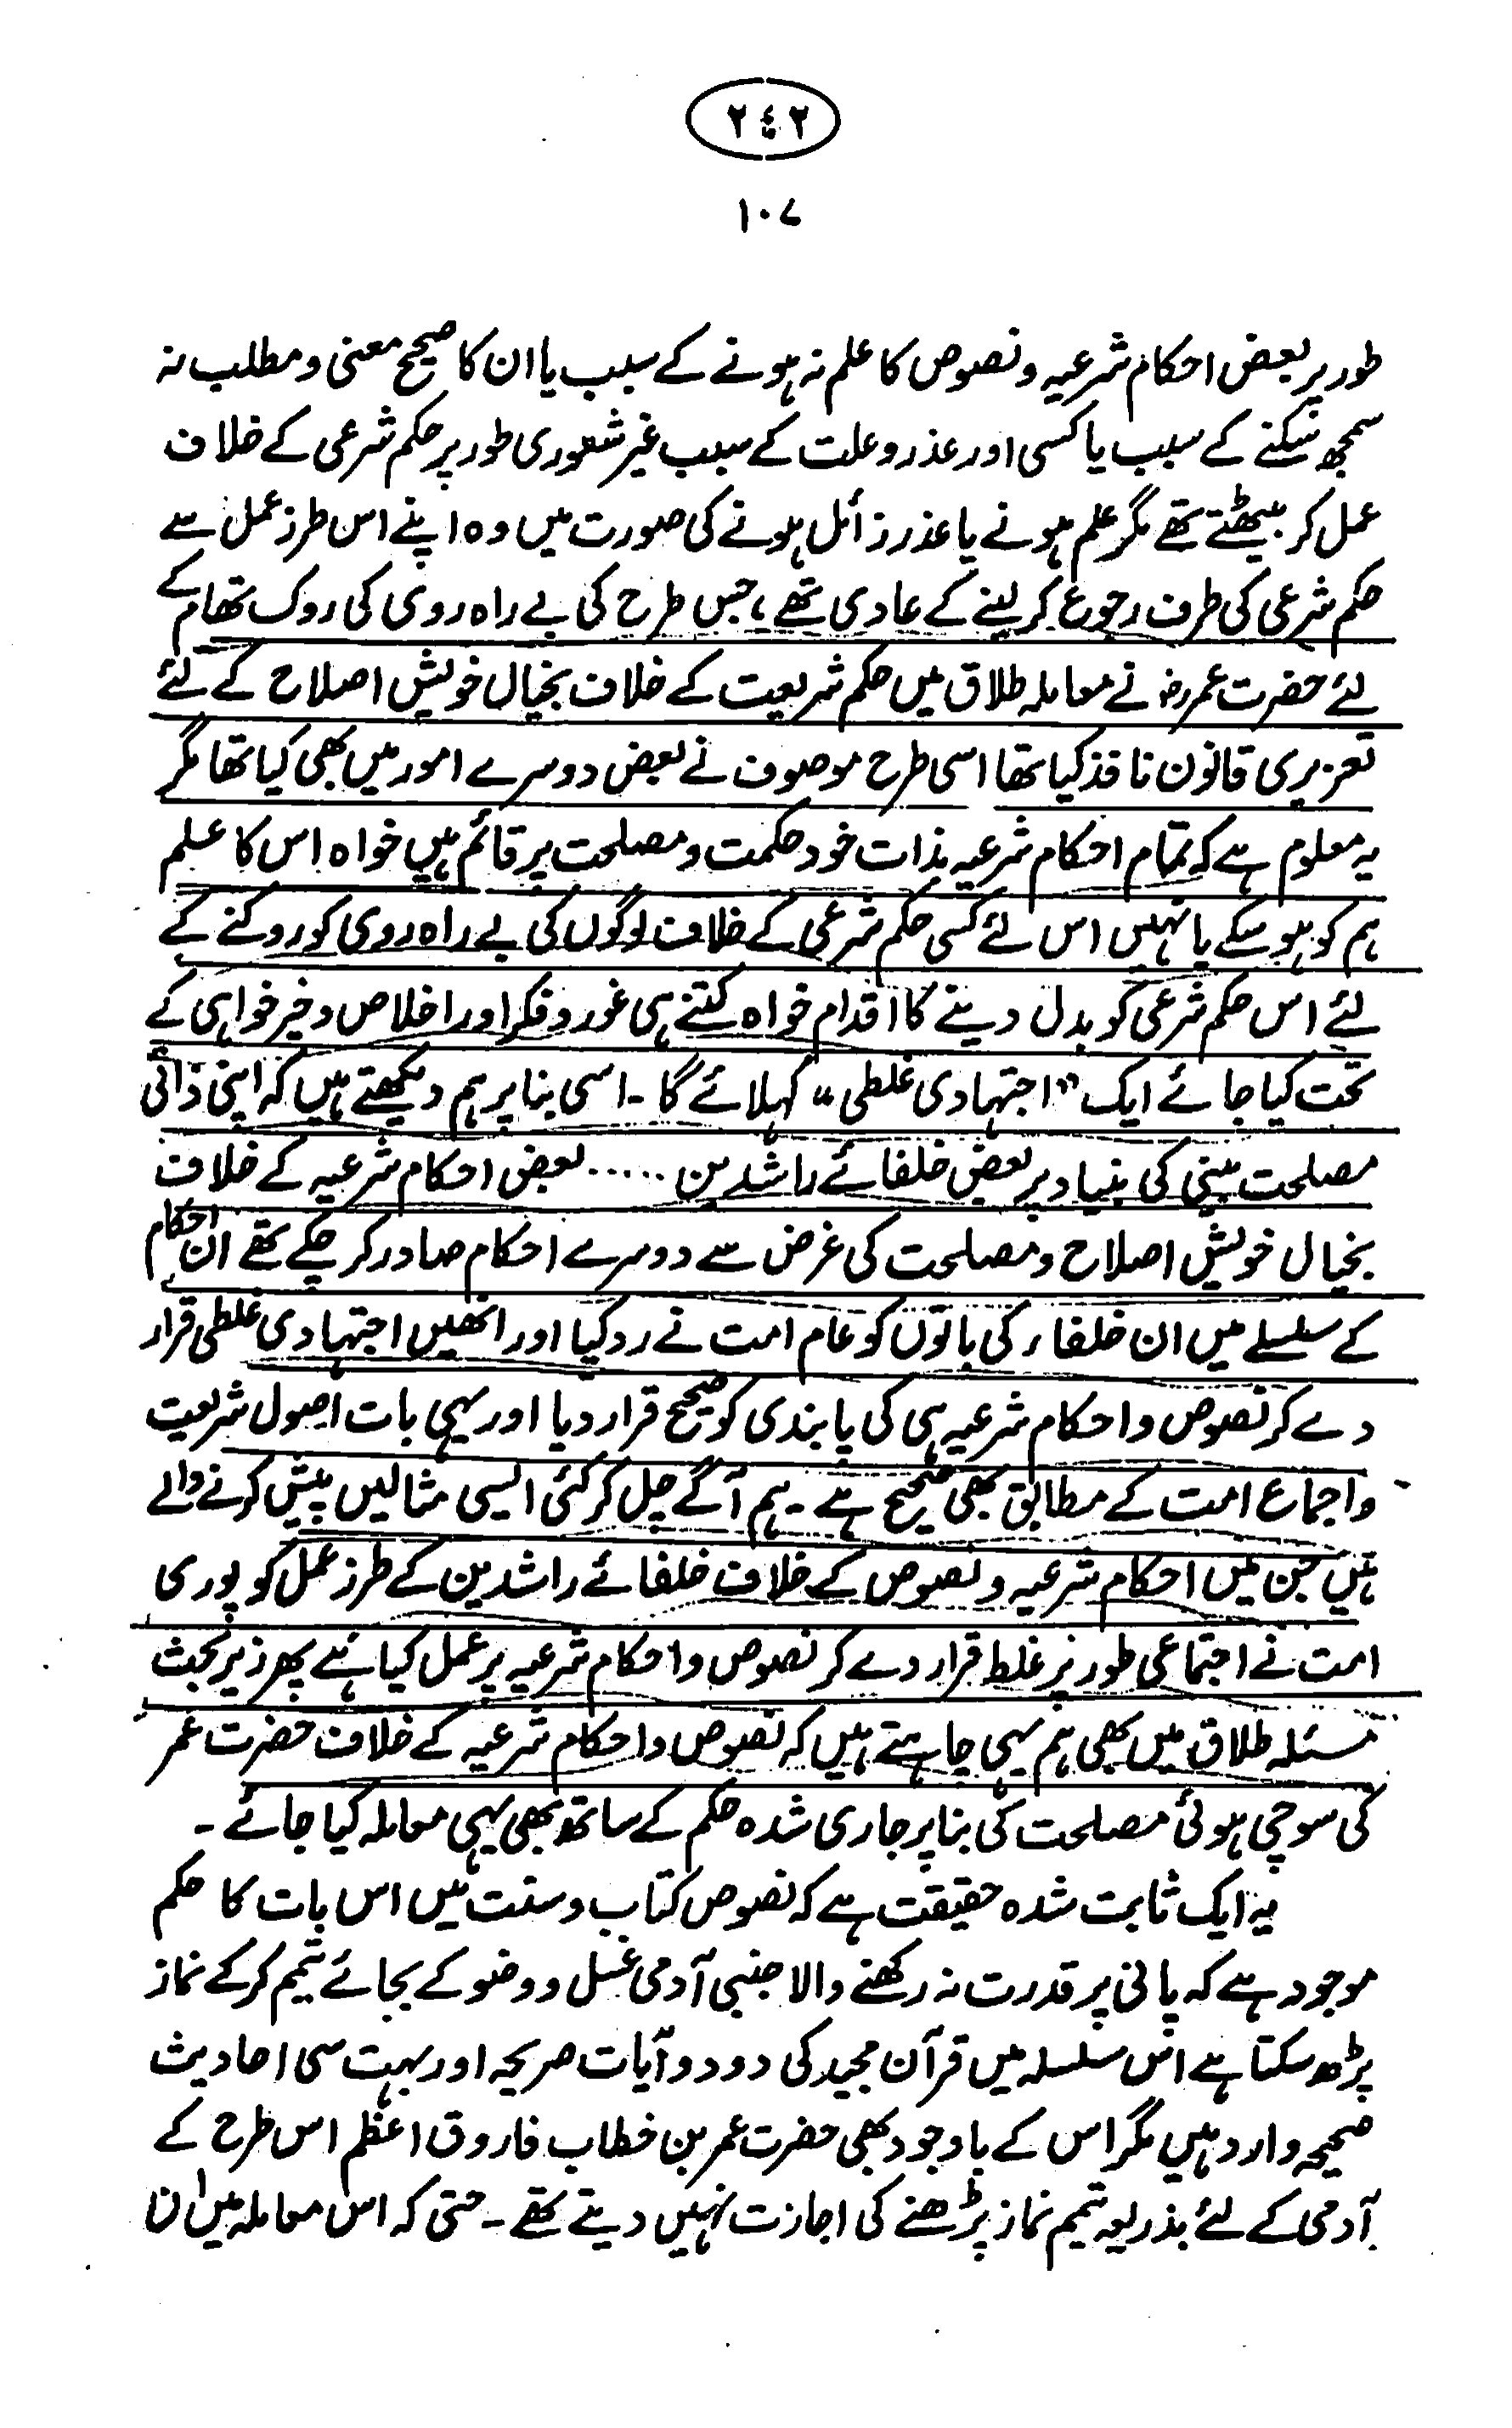 ۲۴۲
۱۰۷
طور پر بعض احکام شرعیہ و نصوص کا علم نہ ہونے کے سبب یا ان کا صحیح معنی و مطلب نہ
سمجھ سکنے کے سبب یا کسی اور عذر و علت کے سبب غیر شعوری طور پر حکم شرعی کے خلاف
عمل کر بیٹھتے تھے مگر علم ہونے یا عذر زائل ہونے کی صورت میں وہ اپنے اس طرز عمل سے
حکم شرعی کی طرف رجوع کر لینے کے عادی تھے، جس طرح کی بے راہ روی کی روک تھام کے
لئے حضرت عمر رضؓ نے معاملہ طلاق میں حکم شریعت کے خلاف بخیال خویش اصلاح کے لئے
تعزیری قانون نافذ کیا تھا اسی طرح موصوف نے بعض دوسرے امور میں بھی کیا تھا مگر
یہ معلوم ہے کہ تمام احکام شرعیہ بذات خود حکمت و مصلحت پر قائم ہیں خواہ اس کا علم
ہم کو ہو سکے یا نہیں اس لئے کسی حکم شرعی کے خلاف لوگوں کی بے راہ روی کو روکنے کے
لئے اس حکم شرعی کو بدل دینے کا اقدام خواہ کتنے ہی غور و فکر اور اخلاص و خیر خواہی کے
تحت کیا جائے ایک "اجتہادی غلطی" کہلائے گا۔ اسی بنا پر ہم دیکھتے ہیں کہ اپنی ذاتی
مصلحت بینی کی بنیاد پر بعض خلفائے راشدین ..... بعض احکام شرعیہ کے خلاف
بخیال خویش اصلاح و مصلحت کی غرض سے دوسرے احکام صادر کر چکے تھے ان احکام
کے سلسلے میں ان خلفاء کی باتوں کو عام امت نے رد کیا اور انھیں اجتہادی غلطی قرار
دے کر نصوص و احکام شرعیہ ہی کی پابندی کو صحیح قرار دیا اور یہی بات اصول شریعت
و اجماع امت کے مطابق بھی صحیح ہے۔ ہم آگے چل کر کئی ایسی مثالیں پیش کرنے والے
ہیں جن میں احکام شرعیہ و نصوص کے خلاف خلفائے راشدین کے طرز عمل کو پوری
امت نے اجتماعی طور پر غلط قرار دے کر نصوص و احکام شرعیہ پر عمل کیا ہے پھر زیر بحث
مسئلہ طلاق میں بھی ہم یہی چاہتے ہیں کہ نصوص و احکام شرعیہ کے خلاف حضرت عمر
کی سوچی ہوئی مصلحت کی بنا پر جاری شدہ حکم کے ساتھ بھی یہی معاملہ کیا جائے۔
یہ ایک ثابت شدہ حقیقت ہے کہ نصوص کتاب و سنت میں اس بات کا حکم
موجود ہے کہ پانی پر قدرت نہ رکھنے والا جنبی آدمی غسل و وضو کے بجائے تیمم کر کے نماز
پڑھ سکتا ہے اس سلسلہ میں قرآن مجید کی دو دو آیات صریحہ اور بہت سی احادیث
صحیحہ وارد ہیں مگر اس کے باوجود بھی حضرت عمر بن خطاب فاروق اعظم اس طرح کے
آدمی کے لئے بذریعہ تیمم نماز پڑھنے کی اجازت نہیں دیتے تھے۔ حتی کہ اس معاملہ میں ان